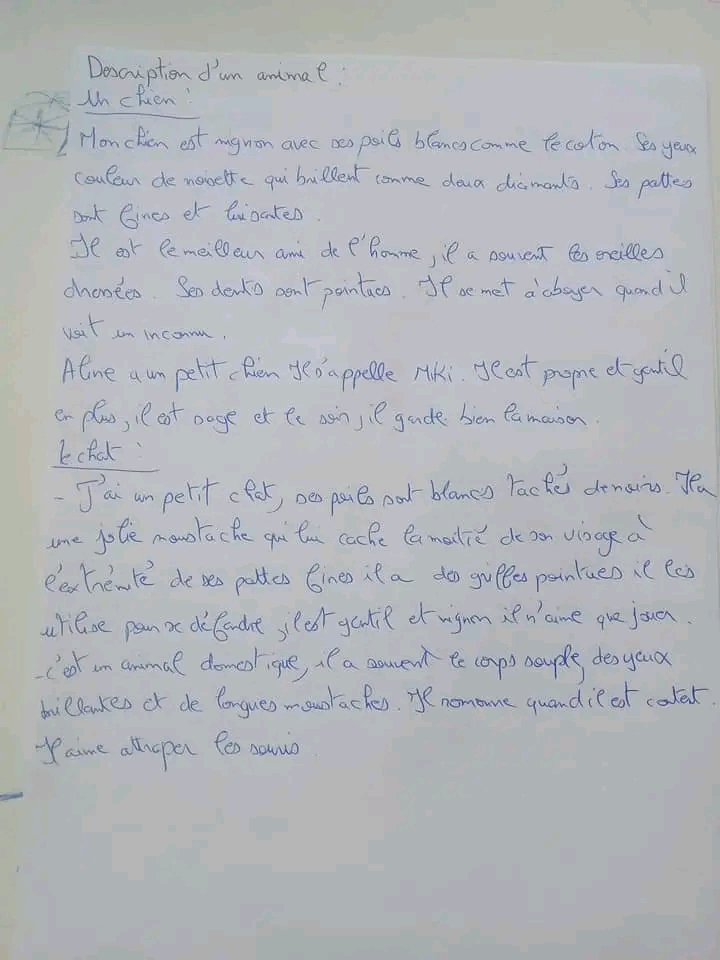 Description d'un animal :
Un chien :
Mon chien est mignon avec ses poils blancs comme le coton. Ses yeux
couleur de noisette qui brillent comme deux diamants. Ses pattes
sont fines et luisantes.
Il est le meilleur ami de l'homme, il a souvent les oreilles
dressées. Ses dents sont pointues. Il se met à aboyer quand il
voit un inconnu.
Aline a un petit chien Il s'appelle Miki. Il est propre et gentil
en plus, il est sage et le soir, il garde bien la maison.
le chat :
- J'ai un petit chat, ses poils sont blancs tachés de noirs. Il a
une jolie moustache qui lui cache la moitié de son visage à
l'extrémité de ses pattes fines il a des griffes pointues il les
utilise pour se défendre, il est gentil et mignon il n'aime que jouer.
- c'est un animal domestique, il a souvent le corps souple, des yeux
brillantes et de longues moustaches. Il ronronne quand il est content.
Il aime attraper les souris